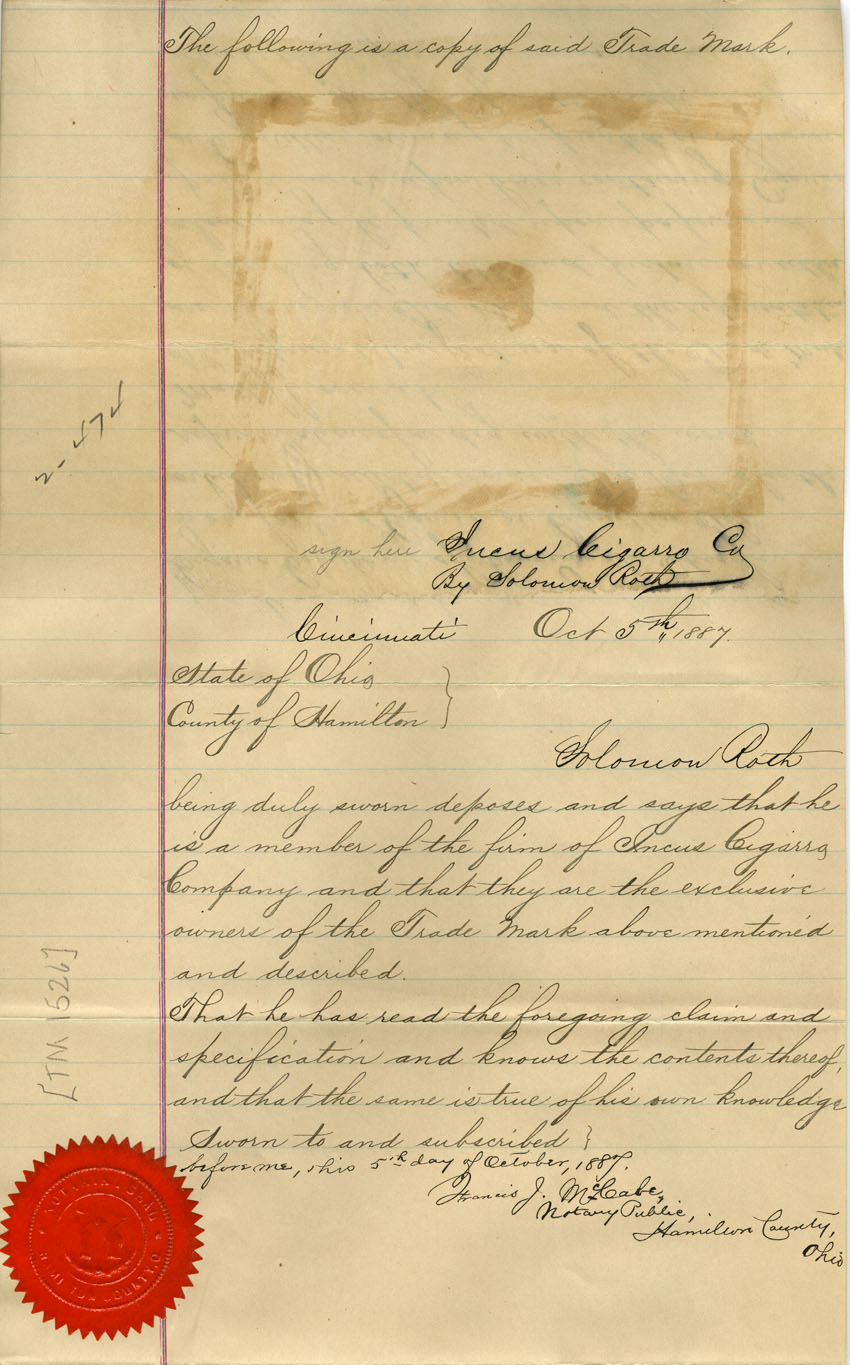 The following is a copy of said Trade Mark.
2-474
sign here Incus Cigarro Co
By Solomon Roth
Cincinnati Oct 5th, 1887.
State of Ohio }
County of Hamilton }
Solomon Roth
being duly sworn deposes and says that he
is a member of the firm of Incus Cigarro
Company and that they are the exclusive
owners of the Trade Mark above mentioned
and described.
That he has read the foregoing claim and
specification and knows the contents thereof,
and that the same is true of his own knowledge
Sworn to and subscribed }
before me, this 5th day of October, 1887.
Francis J. McCabe,
Notary Public,
Hamilton County,
Ohio
[TM 1526]
NOTARIAL SEAL
HAMILTON COUNTY, O.